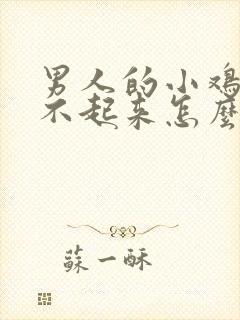 男人的小鸡
不起来怎麼
蘇一酥